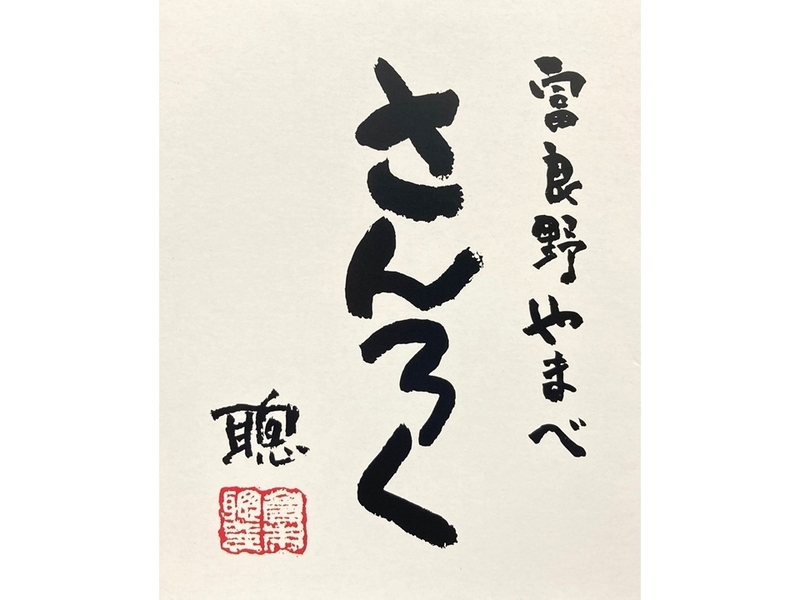 富良野やまべ
さんろく
聰